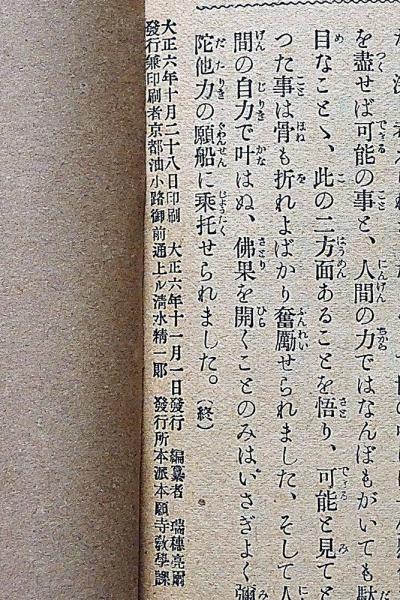 を盡せば可能の事と、人間の力ではなんばもがいても駄
目なことゝ、此の二方面あることを悟り、可能と見てと
つた事は骨も折れよばかり奮勵せられました、そして人
間の自力で叶はぬ、佛果を開くことのみはいさぎよく彌
陀他力の願船に乘托せられました。(終)
大正六年十月二十八日印刷 大正六年十一月一日發行 編纂者 瑞穗亮爾
發行兼印刷者京都油小路御前通上ル淸水精一郎 發行所本派本願寺敎學課